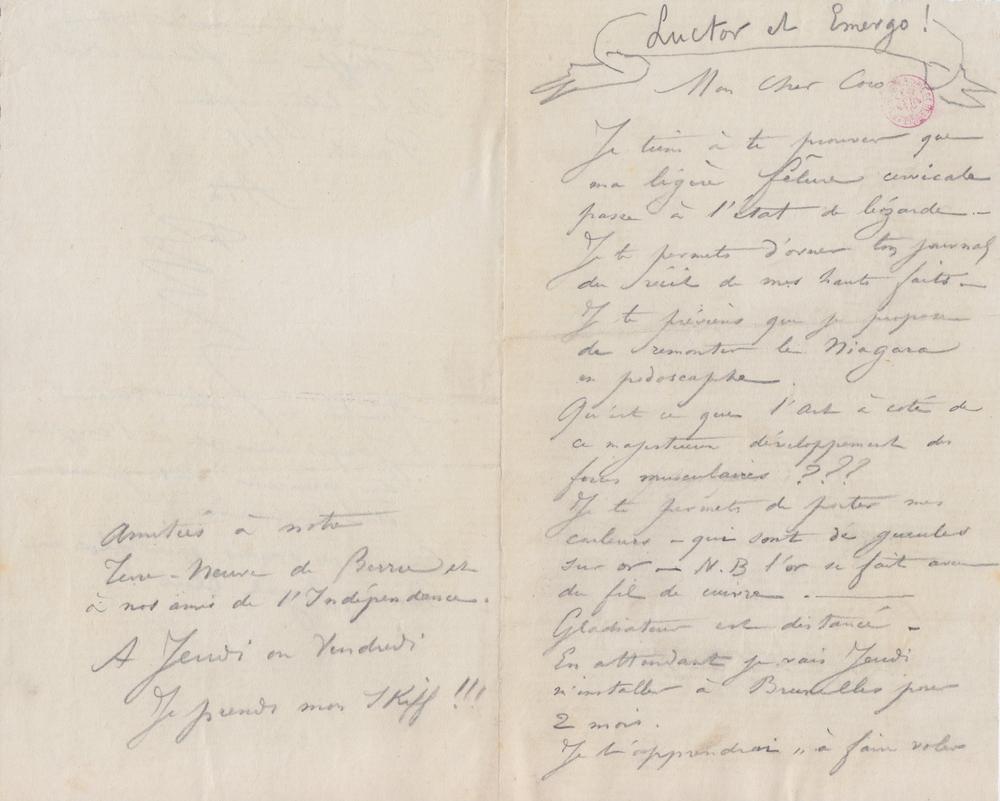 Luctor et Emergo!
Mon cher Coco
Je tiens à te prouver que
ma légère fêlure cervicale
passe à l'état de lézarde. -
Je te permets d'orner ton journal
du récit de mes hauts faits -
Je te préviens que je propose
de remonter le Niagara
en podoscaphe.
Qu'est ce que l'Art à coté de
ce majestueux développement des
forces musculaires ???
Je te permets de porter mes
couleurs - qui sont de gueules
sur or - N.B l'or se fait avec
du fil de cuivre. -
Gladiateur est distancé -
En attendant je vais Jeudi
m'installer à Bruxelles pour
2 mois.
Je t'apprendrai " à faire voler
Amitiés à notre
Terre-Neuve de Berru et
à nos amis de l'Indépendance.
A Jeudi ou Vendredi
Je prends mon Skiff !!!